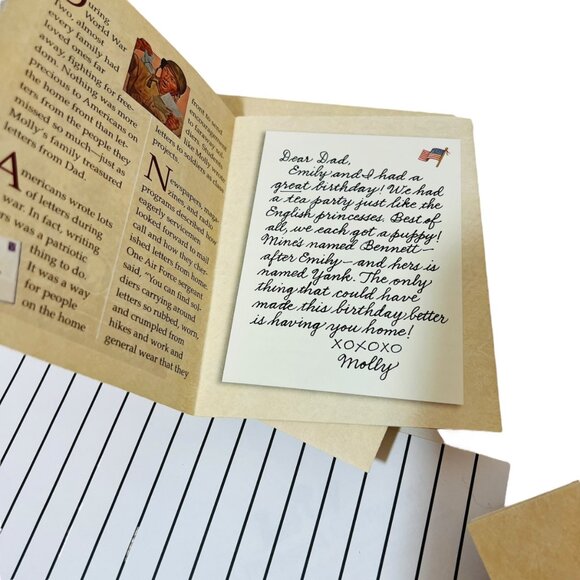 During
World War
Two, almost
every family had
loved ones far
away, fighting for free-
dom. Nothing was more
precious to Americans on
the home front than let-
ters from the people they
missed so much—just as
Molly's family treasured
letters from Dad.
Americans wrote lots
of letters during
war. In fact, writing
ers was a patriotic
thing to do.
It was a way
for people
on the home
front to send
encouragement
to faraway sol-
diers. Schools
like Molly's wrote
letters to soldiers as class
projects.
Newspapers, maga-
zines, and radio
programs described how
soldiers looked forward to mail
call and how they cher-
ished letters from home.
One Air Force sergeant
said, "You can find sol-
diers carrying around
letters so rubbed, worn,
and crumpled from
hikes and work and
general wear that they
Dear Dad,
Emily and I had a
great birthday! We had
a tea party just like the
English princesses. Best of
all, we each got a puppy!
Mine's named Bennett—
after Emily—and hers is
named Yank. The only
thing that could have
made this birthday better
is having you home!
XOXOXO
Molly